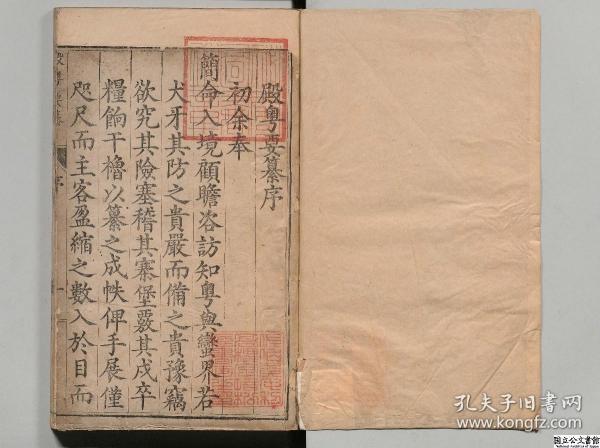 殿粵要纂序
初余奉
簡命入境顧瞻咨訪知粵與蠻界若
犬牙其防之貴嚴而備之貴豫竊
欲究其險塞稽其寨堡覈其戍卒
糧餉干櫓以纂之成帙俾手展僅
咫尺而主客盈縮之數入於目而
序
一
孔夫子旧书网
www.kongfz.com
国立公文書館
National Archives of Japan